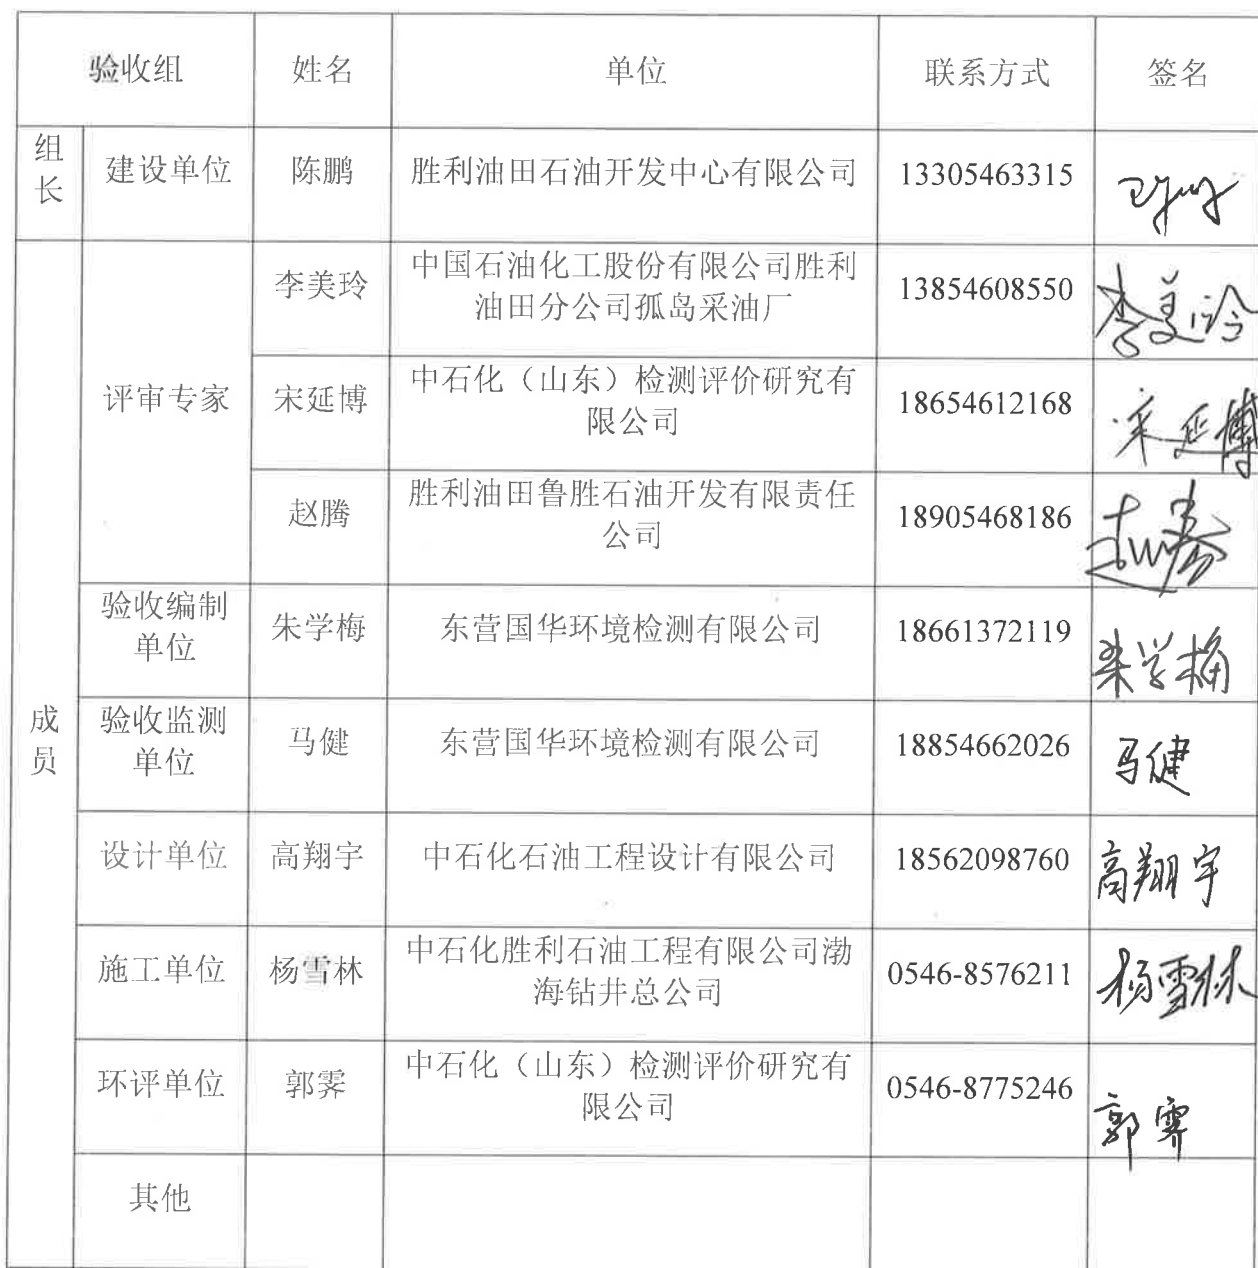 验收组 姓名 单位 联系方式 签名
组长 建设单位 陈鹏 胜利油田石油开发中心有限公司 13305463315
成员
评审专家
李美玲 中国石油化工股份有限公司胜利
油田分公司孤岛采油厂 13854608550 李美玲
宋延博 中石化（山东）检测评价研究有
限公司 18654612168 宋延博
赵腾 胜利油田鲁胜石油开发有限责任
公司 18905468186 赵腾
验收编制
单位 朱学梅 东营国华环境检测有限公司 18661372119 朱学梅
验收监测
单位 马健 东营国华环境检测有限公司 18854662026 马健
设计单位 高翔宇 中石化石油工程设计有限公司 18562098760 高翔宇
施工单位 杨雪林 中石化胜利石油工程有限公司渤
海钻井总公司 0546-8576211 杨雪林
环评单位 郭霁 中石化（山东）检测评价研究有
限公司 0546-8775246 郭霁
其他